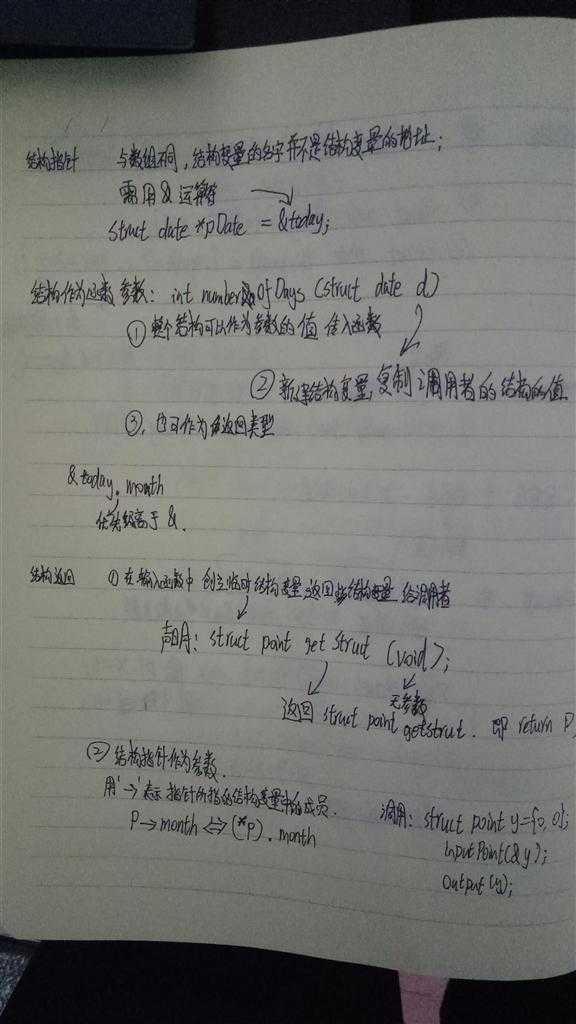 结构指针 与数组不同,结构变量的名字并不是结构变量的地址;
需用&运算符
struct date *pDate = &today;
结构作为函数参数: int numberOfDays (struct date d)
① 整个结构可以作为参数的值 传入函数
② 新建结构变量,复制调用者的结构的值
③. 也可作为返回类型
&today.month
优先级高于&.
结构返回 ① 在输入函数中 创立临时结构变量,返回此结构变量 给调用者
声明: struct point getstruct (void);
无参数
返回 struct point getstrut. 即 return P,
② 结构指针作为参数.
用'→'表示指针所指的结构变量中的成员.
P→month ⇔ (*p).month
调用: struct point y={0,0};
inputPoint(&y);
output(y);